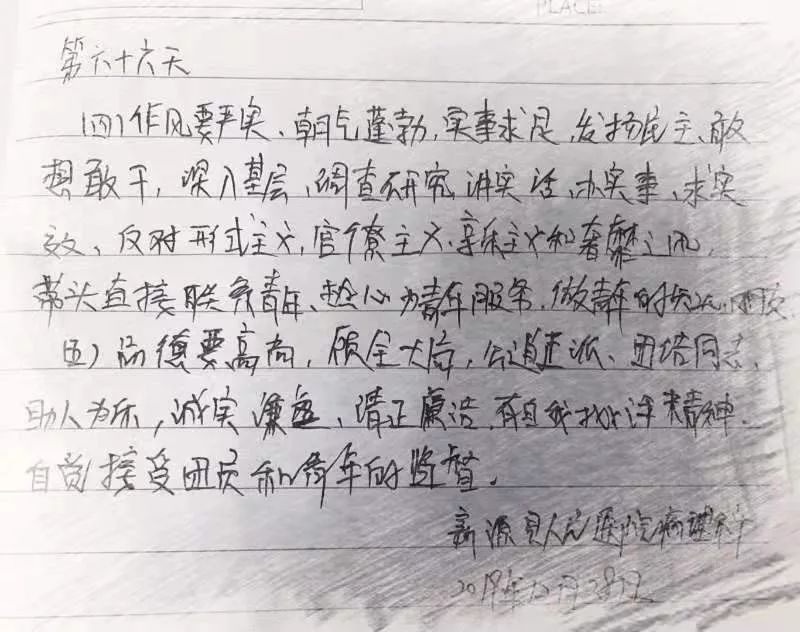 PLACE:
第六十六天
(四)作风要严实、朝气蓬勃,实事求是,发扬民主、敢
想敢干,深入基层、调查研究,讲实话、办实事、求实
效、反对形式主义,官僚主义、享乐主义和奢靡之风,
带头直接联系青年、热心为青年服务,做青年的
五)品德要高尚,顾全大局,公道正派、团结同志、
助人为乐,诚实谦虚、清正廉洁,有自我批评精神.
自觉接受团员和青年的监督。
新源县人民医院病理科
2019年12月28日